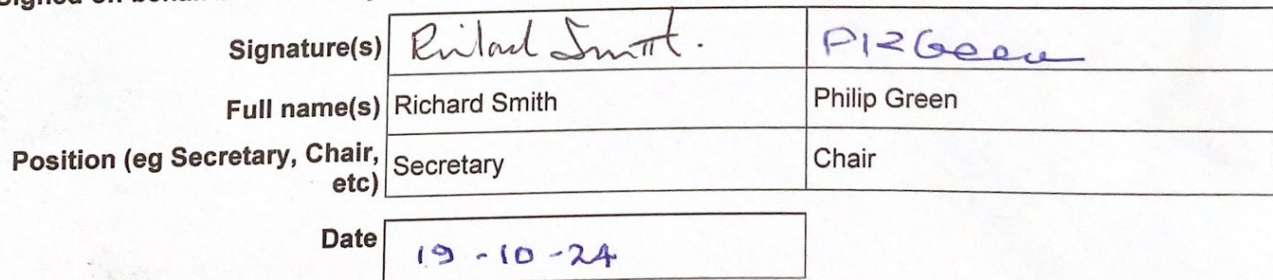 Signature(s) Richard Smith. PR Green
Full name(s) Richard Smith Philip Green
Position (eg Secretary, Chair, Secretary Chair
etc)
Date 19-10-24